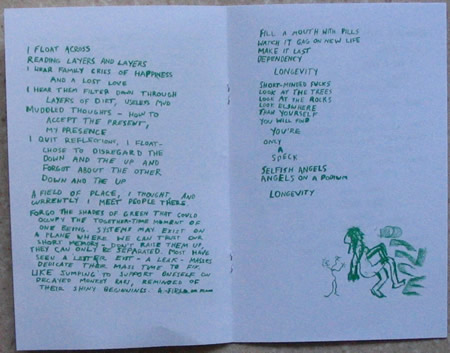 I FLOAT ACROSS
READING LAYERS AND LAYERS
I HEAR FAMILY CRIES OF HAPPINESS
AND A LOST LOVE
I HEAR THEM FILTER DOWN THROUGH
LAYERS OF DIRT, USELESS MUD
MUDDLED THOUGHTS - HOW TO
ACCEPT THE PRESENT,
MY PRESENCE
I QUIT REFLECTION, I FLOAT-
CHOSE TO DISREGARD THE
DOWN AND THE UP AND
FORGOT ABOUT THE OTHER
DOWN AND THE UP
A FIELD OF PLACE, I THOUGHT AND
CURRENTLY I MEET PEOPLE THERE
FORGO THE SHADES OF GREEN THAT COULD
OCCUPY THE TOGETHER-TIME MOMENT OF
ONE BEING. SYSTEMS MAY EXIST ON
A PLANE WHERE WE CAN TRUST OUR
SHORT MEMORY - DON'T RAISE THEM UP,
THEY CAN ONLY BE SEPARATED. MOST HAVE
SEEN A LATTER EXIT - A LEAK - MASSES
DEDICATE THEIR MASS TIME TO FIT,
LIKE JUMPING TO SUPPORT ONESELF ON
DECAYED MONKEY BARS, REMINDED OF
THEIR SHINY BEGINNINGS.
FILL A MOUTH WITH PILLS
WATCH IT GAG ON NEW LIFE
MAKE IT LAST
DEPENDENCY
LONGEVITY
SHORT-MINDED FUCKS
LOOK AT THE TREES
LOOK AT THE ROCKS
LOOK ELSEWHERE
THAN YOURSELF
YOU WILL FIND
YOU'RE
ONLY
A
SPECK
SELFISH ANGELS
ANGELS ON A PODIUM
LONGEVITY